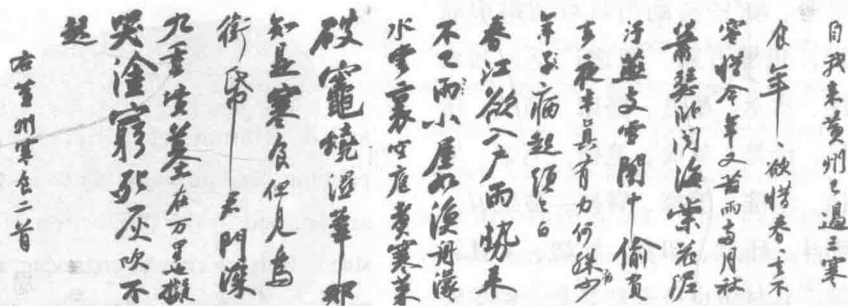 自我來黃州已過三寒
食年年欲惜春春去不
容惜今年又苦雨兩月秋
蕭瑟臥聞海棠花泥
汙燕支雪闇中偷負
去夜半真有力何殊病少
年子病起頭已白
春江欲入戶雨勢來
不已雨小屋如漁舟濛
水雲裏空庖煮寒菜
破竈燒濕葦那
知是寒食但見烏
銜帋君門深
九重墳墓在万里也擬
哭塗窮死灰吹不
起
右黃州寒食二首